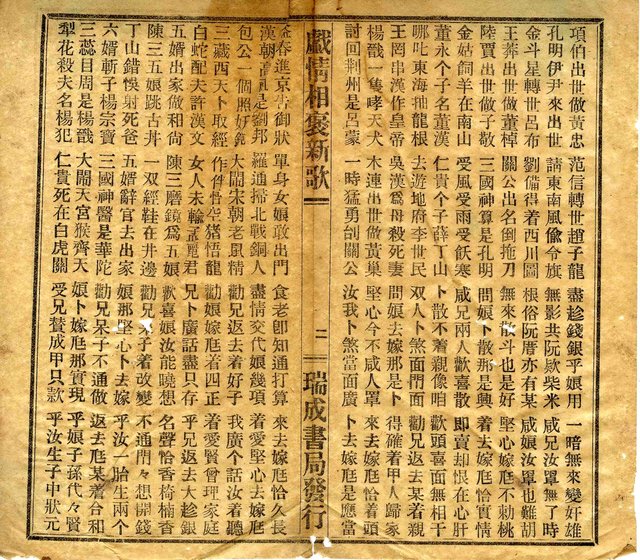 項伯出世做黃忠 范信轉世趙子龍 盡趁錢銀乎娘用 一暗無來變奸雄
孔明伊尹來出世 請東南風儉令旗 無影共阮欵柴米 咸兄汝罩無了時
金斗星轉世呂布 劉備得着西川圖 根俗阮厝亦有某 咸娘汝罩也難胡
王莽出世做董棹 關公出名倒拖刀 無來散斗也是好 堅心嫁尫不勅桃
陸賈出世做子敬 三國神算是孔明 問娘卜散那是興 着去嫁尫恰實情
金姑飼羊在南山 受風受雨受飫寒 咸兄兩人歡喜散 即賣却恨在心肝
董永个子名董漢 仁貴个子薛丁山 卜散不着觀像咱 歡頭喜面無相干
哪吒東海抽龍根 去遊地府李世民 双人卜煞面門面 勸兄返去某着親
王罔串漢作皇帝 吳漢為母殺死妻 問娘去嫁那是卜 得確着甲人歸家
楊戩一隻哮天犬 木連出世做黃巢 堅心今不咸人罩 着去嫁尫恰着頭
討回荆州是呂蒙 一時猛勇刣關公 汝我卜煞當面廣 卜去嫁尫是應當
戲情相褒新歌 二 瑞成書局發行
春進京告御狀 單身女娘敢出門 食老卽知通打算 來去嫁尫恰久長
漢朝高祖是劉邦 羅通掃北戰銅人 盡情交代娘幾項 着愛堅心去嫁尫
包公一個照好鏡 大鬧宋朝老鼠精 勸兄返去着好子 我廣个話汝着聽
三藏西天卜取經 作伴悟空猪悟龍 勸娘嫁尫着四正 着愛賢曾理家庭
白蛇配夫許漢文 女人未輸孟麗君 兄卜廣話盡只存 返去不通大趁銀
五婿出家做和尚 陳三磨鏡為五娘 歡喜娘汝能曉想 名聲恰香椅楠香
陳三五娘跳古丼 一双鞋在井邊 勸兄心子着改變 不通門々想開錢
丁山錯悞射死爸 五婿辭官去出家 娘那堅心卜去嫁 乎汝一胎生兩个
六婿斬子楊宗寶 三國神醫是華陀 勸兄呆子不通做 返去尫某着合和
三蕊目周是楊戩 大鬧天宮猴齊天 娘卜嫁尫那實現 乎娘子孫代々賢
犁花殺夫名楊犯 仁貴死在白虎關 受兄賛成甲只款 乎汝生子中狀元